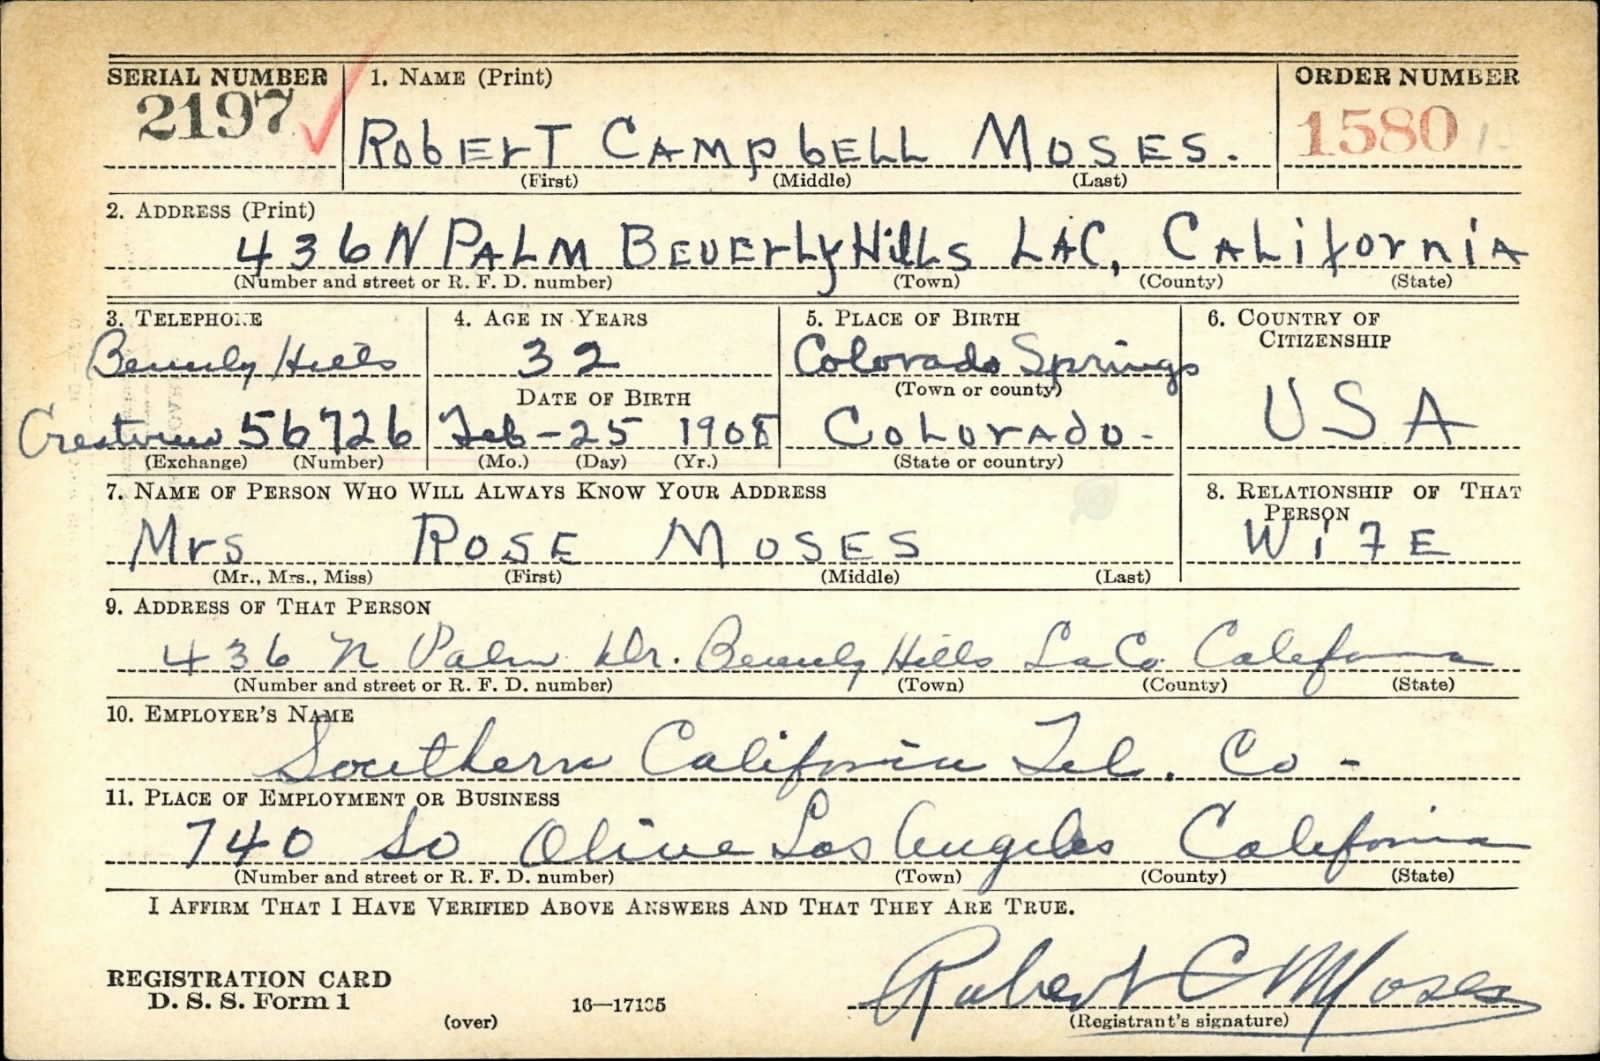 SERIAL NUMBER 1. NAME (Print) ORDER NUMBER
2197 ROBErT CAMpbELL MOSES. 1580
(First) (Middle) (Last)
2. ADDRESS (Print)
436 N PALM BEVErLy HiLLs LAC, CALiforniA
(Number and street or R. F. D. number) (Town) (County) (State)
3. TELEPHONE 4. AGE IN YEARS 5. PLACE OF BIRTH 6. COUNTRY OF CITIZENSHIP
Beverly Hills 32 Colorado Springs
(Town or county)
DATE OF BIRTH USA
Crestview 56726 Feb-25 1908 COLOrAdo-
(Exchange) (Number) (Mo.) (Day) (Yr.) (State or country)
7. NAME OF PERSON WHO WILL ALWAYS KNOW YOUR ADDRESS 8. RELATIONSHIP OF THAT PERSON
Mrs ROSE MOSES WifE
(Mr., Mrs., Miss) (First) (Middle) (Last)
9. ADDRESS OF THAT PERSON
436 N Palm Dr. Beverly Hills La Co California
(Number and street or R. F. D. number) (Town) (County) (State)
10. EMPLOYER'S NAME
Southern California Tel. Co -
11. PLACE OF EMPLOYMENT OR BUSINESS
740 So Olive Los Angeles California
(Number and street or R. F. D. number) (Town) (County) (State)
I AFFIRM THAT I HAVE VERIFIED ABOVE ANSWERS AND THAT THEY ARE TRUE.
REGISTRATION CARD
D. S. S. Form 1 Robert C Moses
(over) 16—17105 (Registrant's signature)